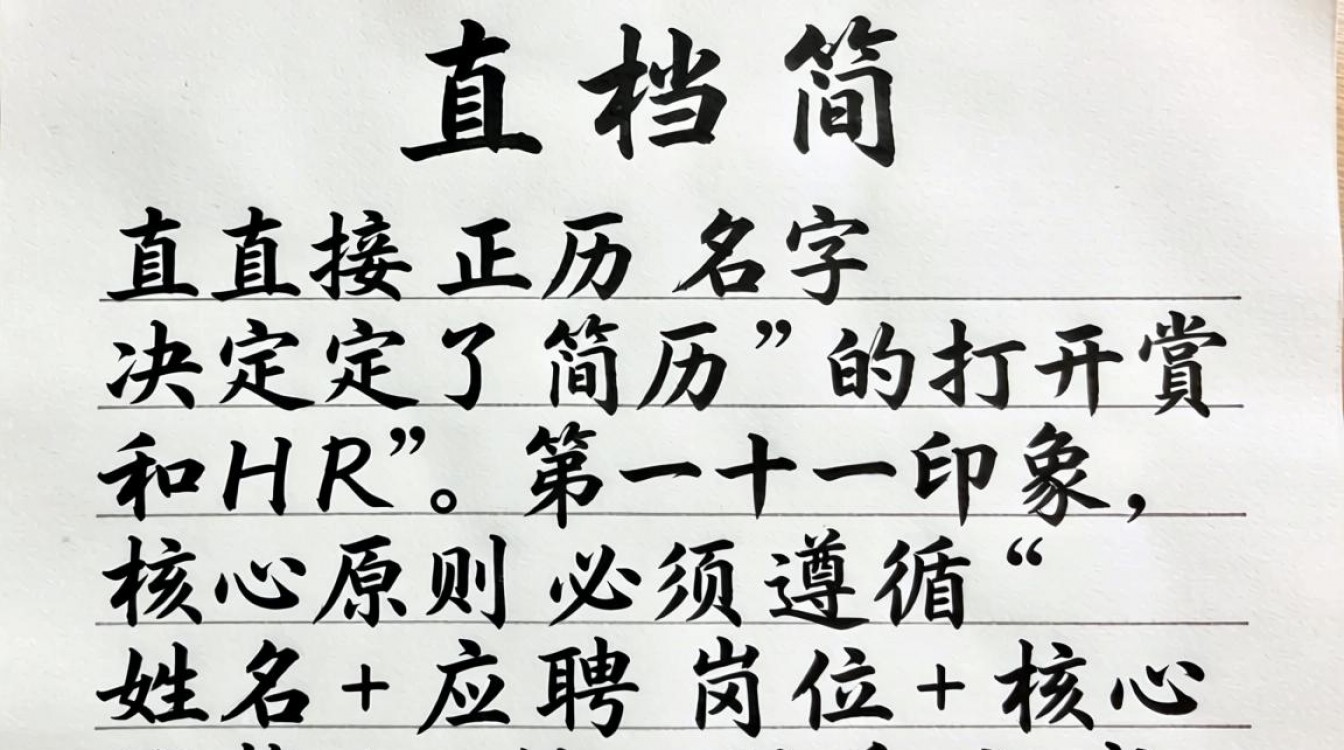 直档简
直直接 正历 名字
决定定了简历”的打开賞
和HR”。第一十一印象，
核心原则 必须遵循“
姓名+应聘 岗位+核心